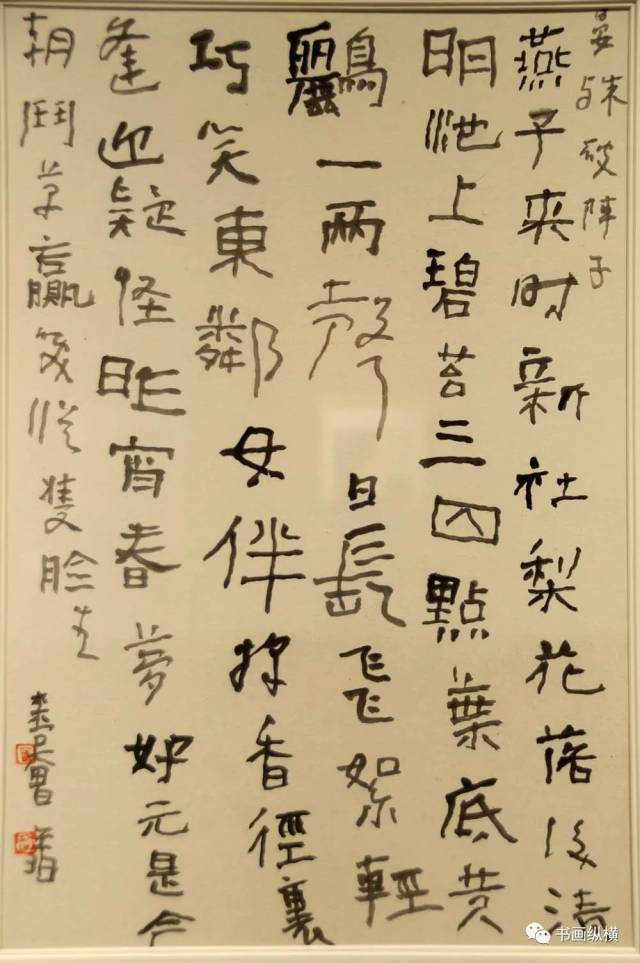 晏殊破陣子
燕子来时新社梨花落後清
明池上碧苔三四點葉底黄
鸝一兩聲日長飞飞絮輕
巧笑東鄰女伴採香徑裏
逢迎疑怪昨宵春夢好元是今
朝鬥草贏笑從隻臉生
书画纵横